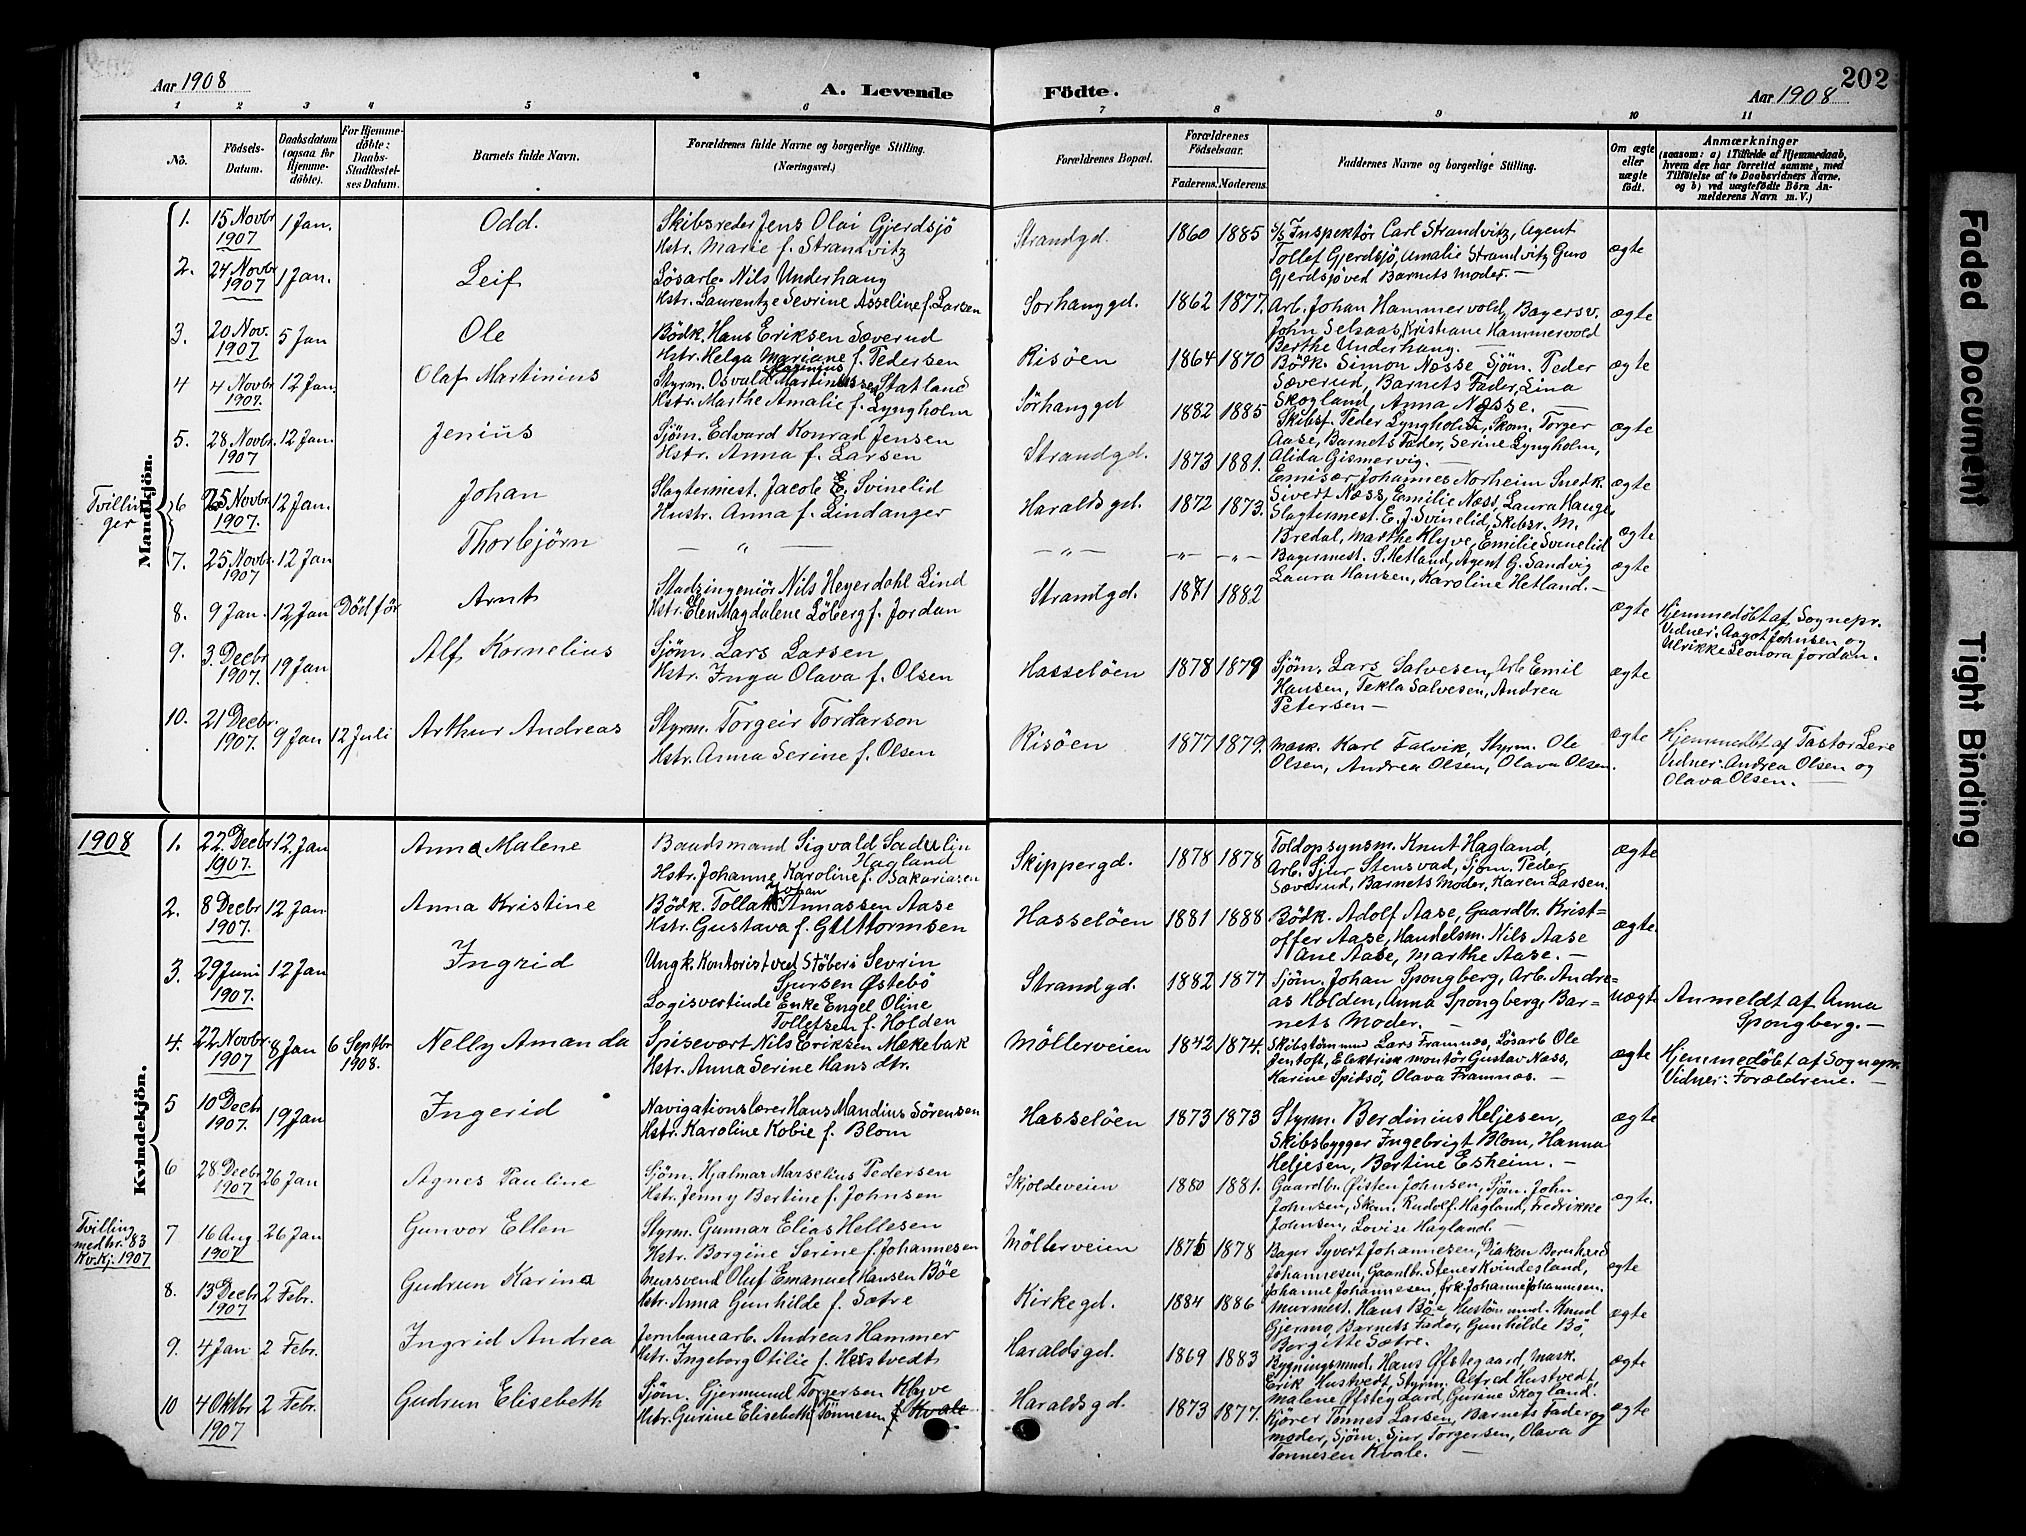 Aar 1908
A. Levende
Födte.
Aar 1908
202
1 2 3 4 5 6 7 8 9 10 11
No.
Födsels-Datum.
Daabsdatum (ogsaa for Hjemme-döbte).
For Hjemme-döbte: Daabs-Stadfæstel-ses Datum.
Barnets fulde Navn.
Forældrenes fulde Navne og borgerlige Stilling.
(Næringsvei.)
Forældrenes Bopæl.
Forældrenes Födselsaar.
Faderens. Moderens.
Faddernes Navne og borgerlige Stilling.
Om ægte eller uægte födt.
Anmærkninger
(saasom: a) i Tilfælde af Hjemmedaab, hvem der har forrettet samme, med Tilföielse af to Daabsvidners Navne, og b) ved uægtefödte Börn An-melderens Navn m. V.)
Mandkjön.
1. 15 Novbr 1907 1 Jan. Odd.
Skibsreder Jens Olai Gjerdsjö
Hstr. Marie f. Strandvitz
Strandgd. 1860 1885
S/S Inspektör Carl Strandvitz, Agent
Tollef Gjerdsjö, Amalie Strandvitz Guro
Gjerdsjö ved Barnets Moder.—
ægte
2. 24 Novbr 1907 1 Jan. Leif
Løsarb. Nils Underhaug
Hstr. Laurentze Sevrine Asseline f. Larsen
Sørhauggd. 1862 1877.
Arb. Johan Hammervold, Bagersv.
John Selsaas, Kristiane Hammervold
Berthe Underhaug.—
ægte
3. 20 Nov. 1907 5 Jan Ole
Bödk. Hans Eriksen Sæverud
Hstr. Helga Mariane f. Pedersen
Risöen 1864 1870
Bödk. Simon Næsse Sjöm. Peder
Sæverud, Barnets Fader, Lina
Skogland, Anna Næsse.—
ægte
4 4 Novbr 1907. 12 Jan. Olaf Martinius
Styrm. Osvald Martinussen Statland
Hstr. Marthe Amalie f. Lyngholm
Sörhauggd 1882 1885
Skibsf. Peder Lyngholm, Skom. Torger
Aase, Barnets Fader, Serine Lyngholm,
Alida Gismervig.—
ægte
5. 28 Novbr. 1907 12 Jan. Jenius
Sjöm. Edvard Konrad Jensen
Hstr. Anna f. Larsen
Strandgd. 1873 1881.
Emisær Johannes Norheim Snedk.
Sivert Næss, Emilie Næss, Laura Hauge
ægte
Tvillinger
6 25 Novbr 1907. 12 Jan. Johan
Slagtermest. Jacob E. Svinelid
Hustr. Anna f. Lindanger
Haraldsgd. 1872 1873.
Slagtermest. E. J. Svinelid, Skibsr. M.
Bredal, Marthe Klyve, Emilie Svinelid
ægte
7. 25 Novbr. 1907 12 Jan Thorbjörn
— " —
— " — — " — — " —
Bagermest. S. Hetland, Agent G. Sandvig
Laura Hansen, Karoline Hetland.—
ægte
8. 9 Jan. 12 Jan Död för Arnt
Stadsingeniör Nils Heyerdahl Lind
Hstr. Elen Magdalene Löberg f. Jordan
Strandgd. 1871 1882
ægte
Hjemmedöbt af Sognepr.
Vidner: Aagot Johnsen og
Ulrikke Leonora Jordan.
9. 3 Decbr 1907. 19 Jan Alf Kornelius
Sjöm. Lars Larsen
Hstr. Inga Olava f. Olsen
Hasselöen 1878 1879
Sjöm. Lars Salvesen, Arb. Emil
Hansen, Tekla Salvesen, Andrea
Petersen—
ægte
10. 21 Decbr. 1907. 9 Jan 12 Juli Arthur Andreas
Styrm. Torgeir Tordarson
Hstr. Anna Serine f. Olsen
Risöen 1877 1879.
Mask. Karl Falvik, Styrm. Ole
Olsen, Andrea Olsen, Olava Olsen.
ægte
Hjemmedöbt af Pastor Lere
Vidner: Andrea Olsen og
Olava Olsen.—
1908
Kvindekjön.
1. 22 Decbr. 1907. 12 Jan Anna Malene
Baadsmand Sigvald Sadulin
Hagland
Hstr. Johanne Karoline f. Sakariasen
Skippergd. 1878 1878
Toldopsynsm. Knut Hagland,
Arb. Sjur Stensvad, Sjöm. Peder
Sæverud, Barnets Moder, Karen Larsen.
ægte
2. 8 Decbr 1907. 12 Jan Anna Kristine
Johan
Bödk. Tollak Annassen Aase
Hstr. Gustava f. Guttormsen
Hasselöen 1881 1888
Bödk. Adolf Aase, Gaardbr. Krist=
offer Aase, Handelsm. Nils Aase
Ane Aase, Marthe Aase.—
ægte.
3. 29 Juni 1907. 12 Jan Ingrid
Ungk. Kontorist ved Støberi Sevrin
Sjursen Østebö
Logisvertinde Enke Engel Oline
Tollefsen f. Holden
Strandgd. 1882 1877
Sjöm. Johan Spongberg, Arb. Andre=
as Holden, Anna Spongberg, Bar=
nets Moder.—
uægte
Anmeldt af Anna
Spongberg.—
4. 22 Novbr. 1907 8 Jan 6 Septbr 1908. Nelly Amanda
Spisevært Nils Eriksen Mækebak
Hstr. Anna Serine Hans dtr.
Möllerveien 1842 1874.
Skibstömmd Lars Framnæs, Lösarb Ole
Jentoft, Elektrisk montör Gustav Næss,
Karine Spidsö, Olava Framnæs.—
ægte
Hjemmedöbt af Sognepr.
Vidner: Forældrene.—
5 10 Decbr 1907. 19 Jan Ingerid
Navigationslærer Hans Mandius Sörensen
Hstr. Karoline Kobie f. Blom
Hasselöen 1873 1873
Styrm. Berdinius Heljesen,
Skibsbygger Ingebrigt Blom, Hanna
Heljesen, Bertine Esheim.—
ægte
6 28 Decbr 1907 26 Jan Agnes Pauline
Sjöm. Hjalmar Marselius Pedersen
Hstr. Jenny Bertine f. Johnsen
Skjoldeveien 1880 1881.
Gaardbr. Øisten Johnsen, Sjöm. John
Johnsen, Skom. Rudolf Hagland, Fredrikke
Johnsen, Lovise Hagland.—
ægte.
Tvilling med nr. 83 Kv.Kj. 1907
7 16 Aug 1907 26 Jan Gunvor Ellen
Styrm. Gunnar Elias Hellesen
Hstr. Borgine Serine f. Johannesen
Möllerveien 1875 1878
Bager Syvert Johannesen, Diakon Bernhard
Johannesen, Gaardbr. Stener Kvindesland,
Johanne Johannesen, frk Johanne Johannesen.
ægte
8. 13 Decbr 1907 2 Febr. Gudrun Karina
Mursvend Oluf Emanuel Hansen Böe
Hstr. Anna Gunhilde f. Sætre
Kirkegd. 1884 1886
Murmest. Hans Böe, Hustömmd. Knud
Gjermo, Barnets Fader, Gunhilde Bö,
Borgitte Sætre.
ægte
9. 4 Jan 2 Febr. Ingrid Andrea
Jernbanearb. Andreas Hammer
Hstr. Ingeborg Otilie f. Hustvedt
Haraldsgd. 1869 1883
Bygningsmd. Hans Øfstegaard, Mask.
Erik Hustvedt, Styrm. Alfred Hustvedt,
Malene Øfstegaard, Gurine Skogland.
ægte
10 4 Oktbr 1907 2 Febr. Gudrun Elisebeth
Sjöm. Gjermund Torgersen Klyve
Hstr. Gurine Elisebeth Tönnesen f. Kvale
Haraldsgd. 1873 1877.
Kjörer Tönnes Larsen, Barnets Fader og
moder, Sjöm. Sjur Torgersen, Olava
Tönnesen Kvale.—
ægte
Faded Document
Tight Binding